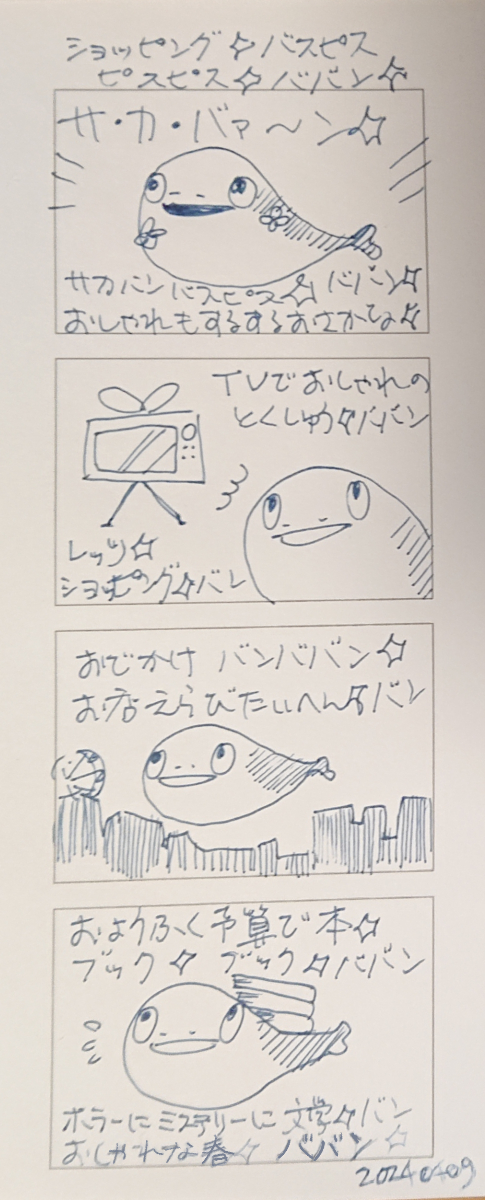 ショッピング☆バスピス
ピスピス☆ババン☆
サ・カ・バァ〜ン☆
サカバンバスピス☆ババーン☆
おしゃれもするするおさかなよ☆
TVでおしゃれの
とくしゅう☆ババン
レッツ☆
ショッピング☆バン
おでかけ バンババン☆
お店えらびたいへん☆バン
おようふく予算で本☆
ブック☆ブック☆ババン
ホラーにミステリーに文学☆バン
おしゃれな春☆ババン☆
20240409